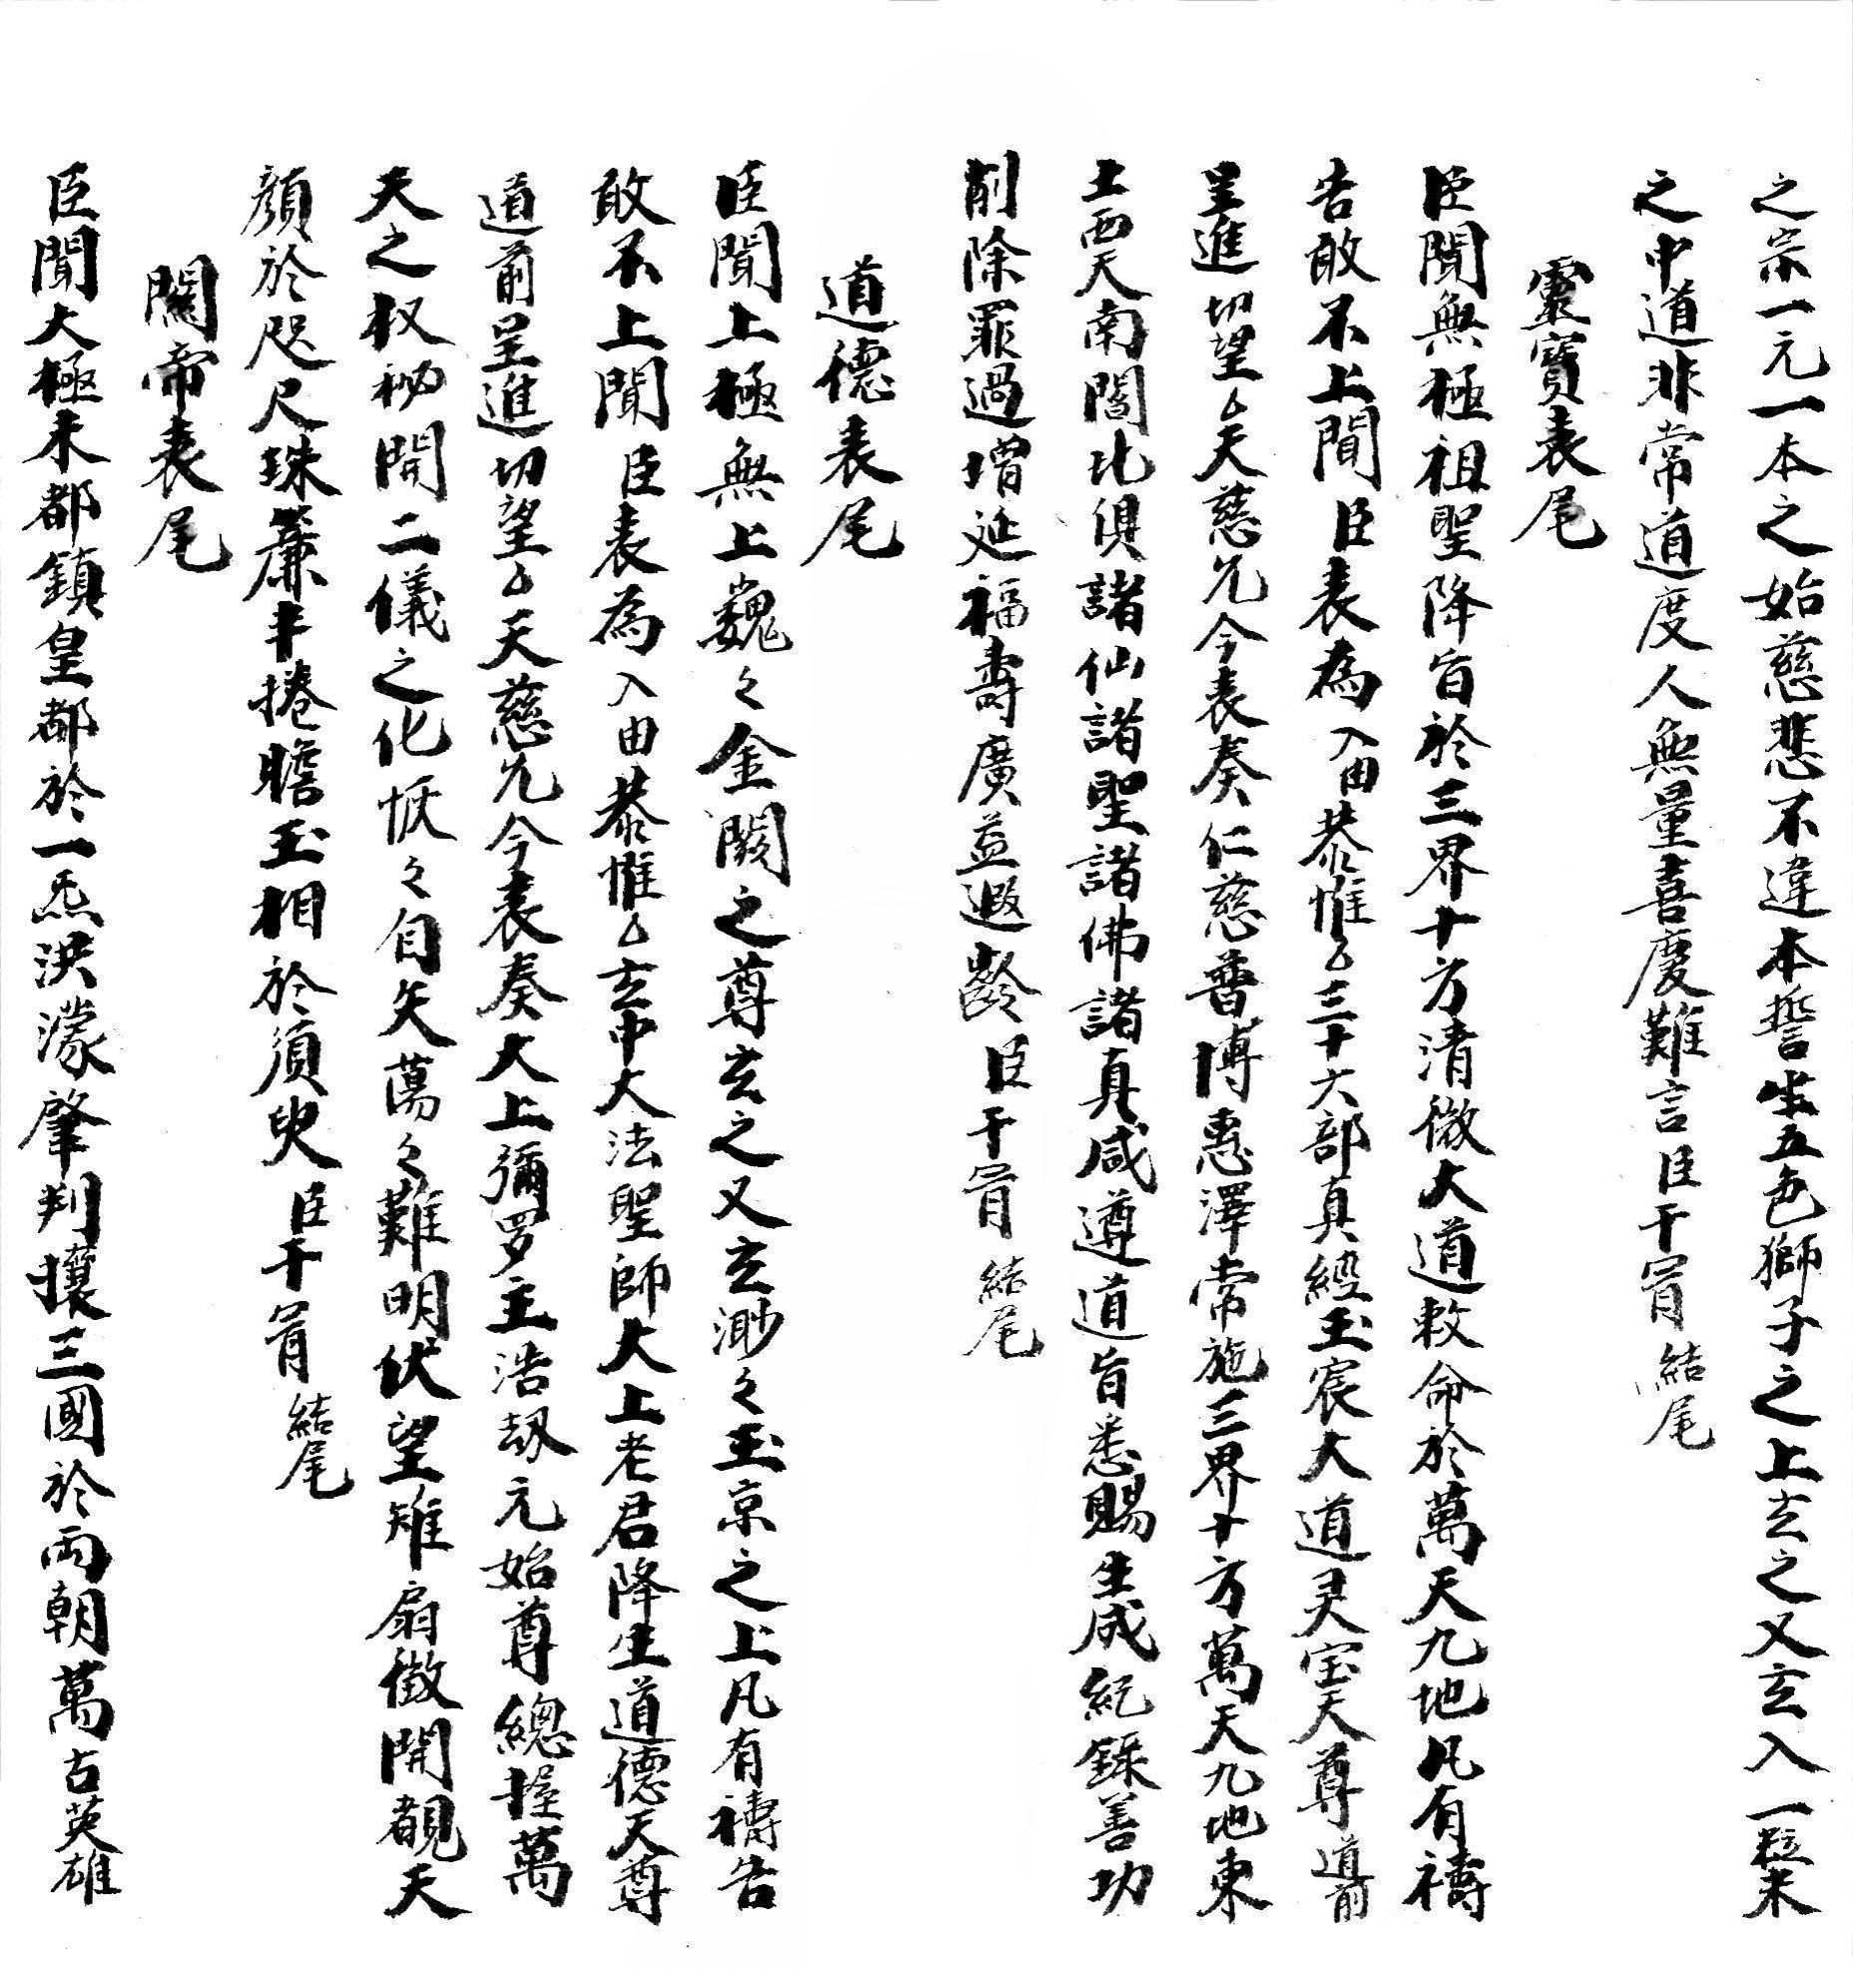 之宗一元一本之始慈悲不違本誓坐五色獅子之上玄之又玄入一粒末
之中道非常道度人無量喜慶難言臣干冐結尾
靈寶表尾
臣聞無極祖聖降旨於三界十方清微大道敕命於萬天九地凡有禱
告敢不上聞臣表為入由恭惟々三十六部真經玉宸大道灵宝天尊道前
呈進切望々天慈允今表奏仁慈普博惠澤常施三界十方萬天九地東
土西天南閻北俱諸仙諸聖諸佛諸真咸遵道旨悉賜生成紀錄善功
削除罪過增延福壽廣益遐齡臣干冐結尾
道德表尾
臣聞上極無上巍々金闕之尊玄之又玄渺々玉京之上凡有禱告
敢不上聞臣表為入由恭惟々玄中大法聖師大上老君降生道德天尊
道前呈進切望々天慈允今表奏大上彌罗主浩劫元始尊總握萬
天之权秘開二儀之化恢々自矢蕩々難明伏望雉扇微開覩天
顏於咫尺珠簾半捲瞻玉相於須臾臣干冐結尾
關帝表尾
臣聞大極未都鎮皇都於一炁洪濛肇判攘三國於兩朝萬古英雄